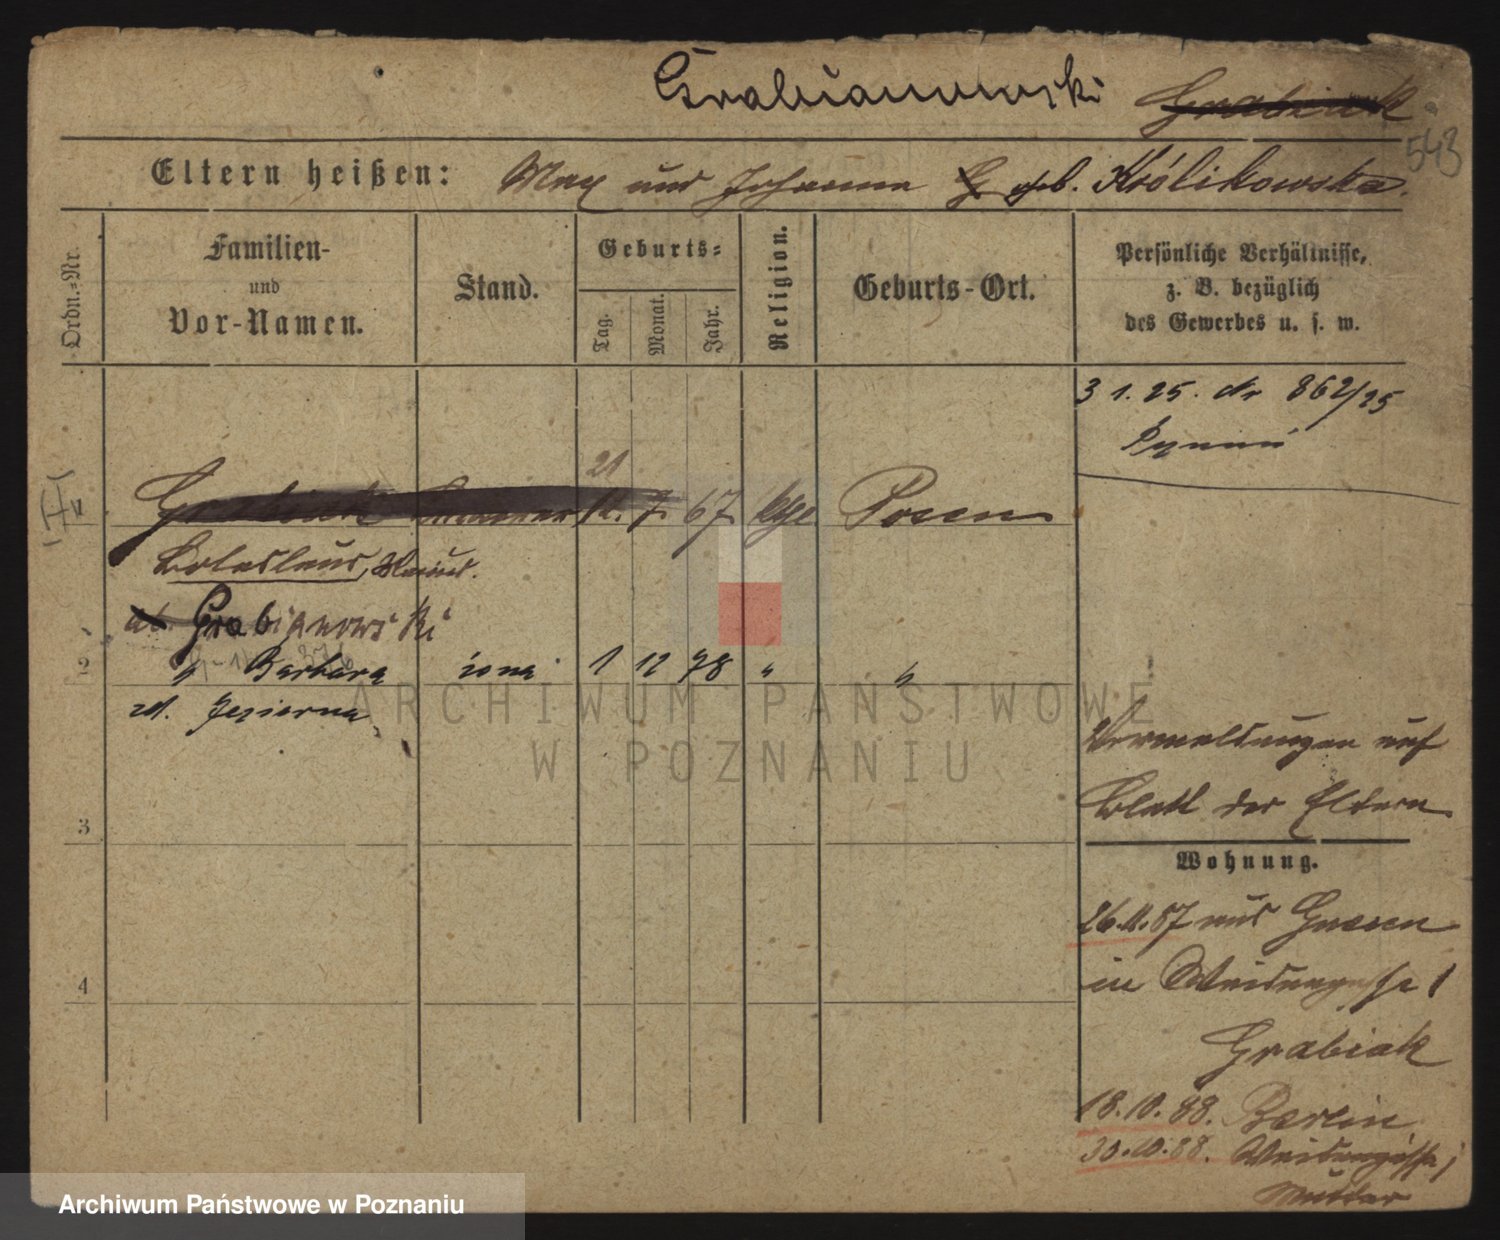 Grabianowski Grabiak
543
Eltern heißen: Max und Johanna geb. Królikowska.
Ordn.-Nr.
Familien-
und
Vor-Namen.
Stand.
Geburts-
Tag.
Monat.
Jahr.
Religion.
Geburts-Ort.
Persönliche Verhältnisse,
z. B. bezüglich
des Gewerbes u. s. w.
3 1. 25. Nr 862/25
21
Grabiak 7. 67 kth Posen
Boleslaus,
Grabianowski
2 " Barbara żona 1 12 78 " "
zd. Jezierna
ARCHIWUM PAŃSTWOWE
W POZNANIU
Vermeldungen auf
Blatt der Eltern
3
Wohnung.
26.11.87 aus Gnesen
in Weidengasse 1
4
Grabiak
18.10.88. Berlin
30.10.88. Weidengasse 1
Mutter
Archiwum Państwowe w Poznaniu